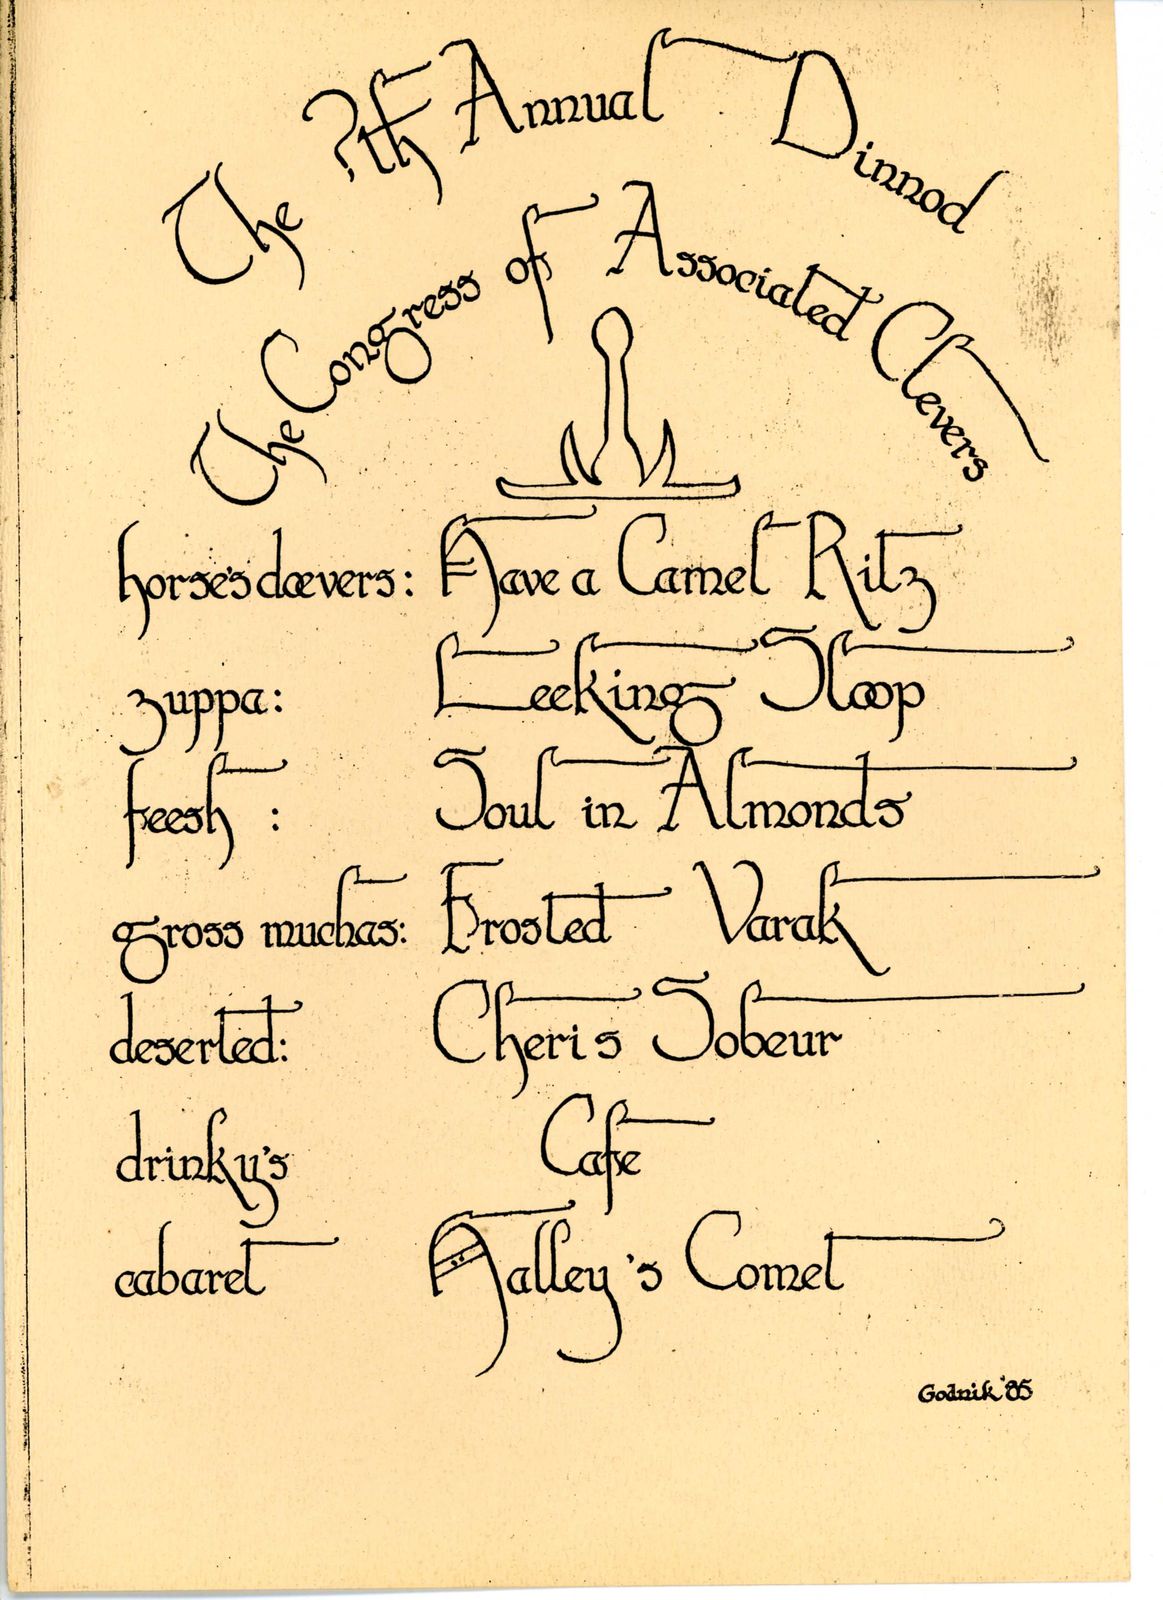 The ?th Annual Dinnod
The Congress of Associated Clevers
horse's dœvers: Have a Camel Ritz
zuppa: Leeking Sloop
feesh : Soul in Almonds
gross muchas: Frosted Varak
deserted: Cheris Sobeur
drinky's Cafe
cabaret Halley's Comet
Godnik '85